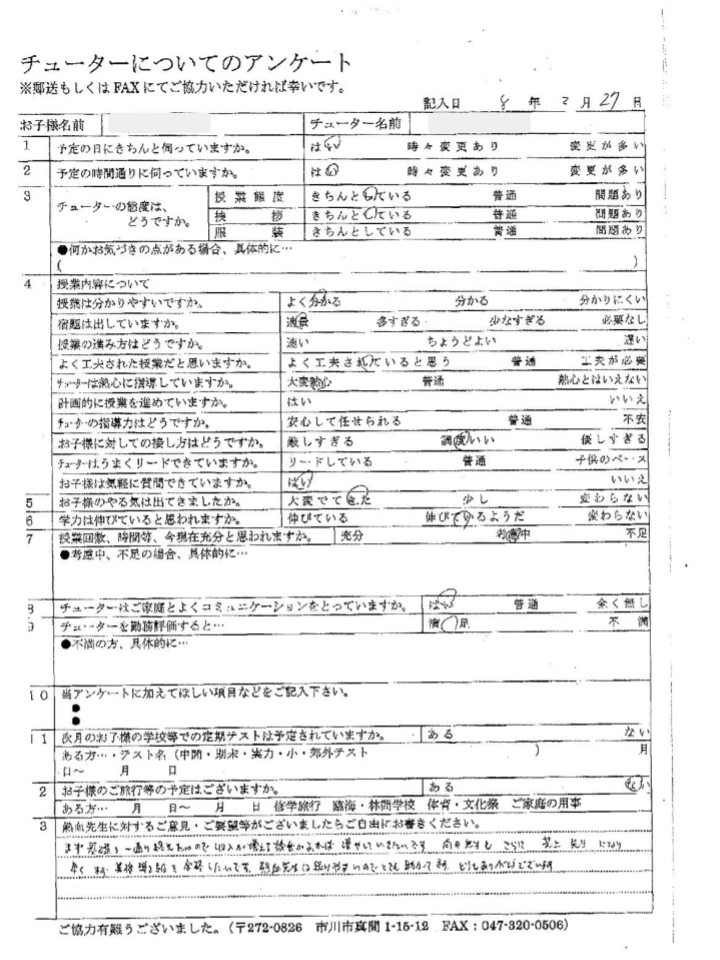 チューターについてのアンケート
※郵送もしくはFAXにてご協力いただければ幸いです。
記入日 8 年 2 月 27 日
お子様名前 チューター名前
1 予定の日にきちんと伺っていますか。 はい 時々変更あり 変更が多い
2 予定の時間通りに伺っていますか。 はい 時々変更あり 変更が多い
3 チューターの態度は、どうですか。 授業態度 きちんとしている 普通 問題あり
挨拶 きちんとしている 普通 問題あり
服装 きちんとしている 普通 問題あり
●何かお気づきの点がある場合、具体的に…
( )
4 授業内容について
授業は分かりやすいですか。 よく分かる 分かる 分かりにくい
宿題は出していますか。 適量 多すぎる 少なすぎる 必要なし
授業の進み方はどうですか。 速い ちょうどよい 遅い
よく工夫された授業だと思いますか。 よく工夫されていると思う 普通 工夫が必要
チューターは熱心に指導していますか。 大変熱心 普通 熱心とはいえない
計画的に授業を進めていますか。 はい いいえ
チューターの指導力はどうですか。 安心して任せられる 普通 不安
お子様に対しての接し方はどうですか。 厳しすぎる 調度いい 優しすぎる
チューターはうまくリードできていますか。 リードしている 普通 子供のペース
お子様は気軽に質問できていますか。 はい いいえ
5 お子様のやる気は出てきましたか。 大変でてきた 少し 変わらない
6 学力は伸びていると思われますか。 伸びている 伸びているようだ 変わらない
7 授業回数、時間等、今現在充分と思われますか。 充分 考慮中 不足
●考慮中、不足の場合、具体的に…
8 チューターはご家庭とよくコミュニケーションをとっていますか。 はい 普通 全く無し
9 チューターを勤務評価すると… 満足 不満
●不満の方、具体的に…
10 当アンケートに加えてほしい項目などをご記入下さい。
●
●
11 次月のお子様の学校等での定期テストは予定されていますか。 ある ない
ある方…・テスト名(中間・期末・実力・小・郊外テスト ) 月
日～ 月 日
2 お子様のご旅行等の予定はございますか。 ある ない
ある方… 月 日～ 月 日 修学旅行 臨海・林間学校 体育・文化祭 ご家庭の用事
3 熱血先生に対するご意見・ご要望等がございましたらご自由にお書きください。
ご協力有難うございました。(〒272-0826 市川市真間1-15-12 FAX:047-320-0506)